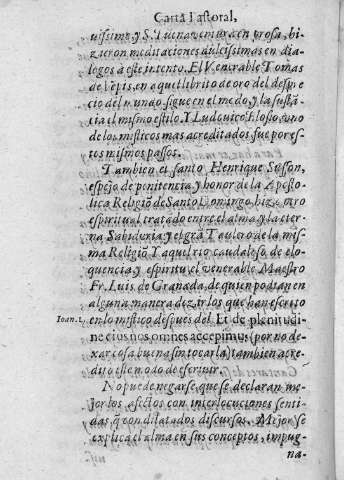 Carta Pastoral,
uissimo, y S. Buenauentura en prosa, hi-
zieron meditaciones dulcissimas en dia-
logos à este intento. El Venerable Tomas
de Kepis, en aquel librito de oro del despre
cio del mundo, sigue en el modo, y la sustã-
cia el mismo estilo. Y Ludouico Blosio, vno
de los misticos mas acreditados fue por es-
tos mismos passos.
Tambien el santo Henrique Susson,
espejo de penitencia, y honor de la Aposto-
lica Religiõ de Santo Domingo, hizo otro
espiritual tratado entre el alma, y la eter-
na Sabiduria, y el grã Taulero de la mis-
ma Religiõ. Y aquel rio caudaloso de elo-
quencia, y espiritu, el venerable Maestro
Fr. Luis de Granada, de quien podian en
alguna manera dezir los que han escrito
Ioan. 1. en lo mistico despues del. Et de plenitudi-
ne eius nos omnes accepimus (por no de-
xar cosa buena sin tocarla) tambien acre-
ditò este modo de escriuir.
No puede negarse, que se declaran me-
jor los afectos con interlocuciones senti-
das, q̃ con dilatados discursos. Mejor se
explica el alma en sus conceptos, impug-
na-